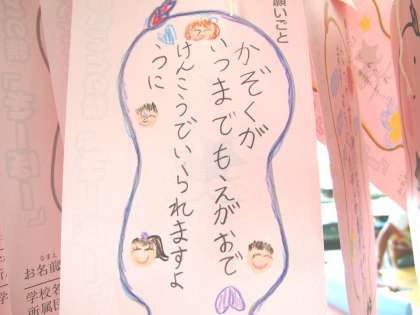 願いごと
かぞくが
いつまでもえがおで
けんこうでいられますよ
うに
お名前
学校名
所属